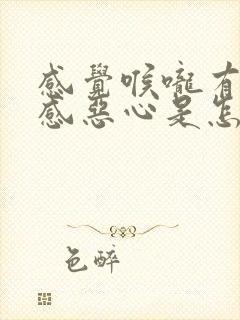 感覺喉嚨有
感惡心是怎
色醉